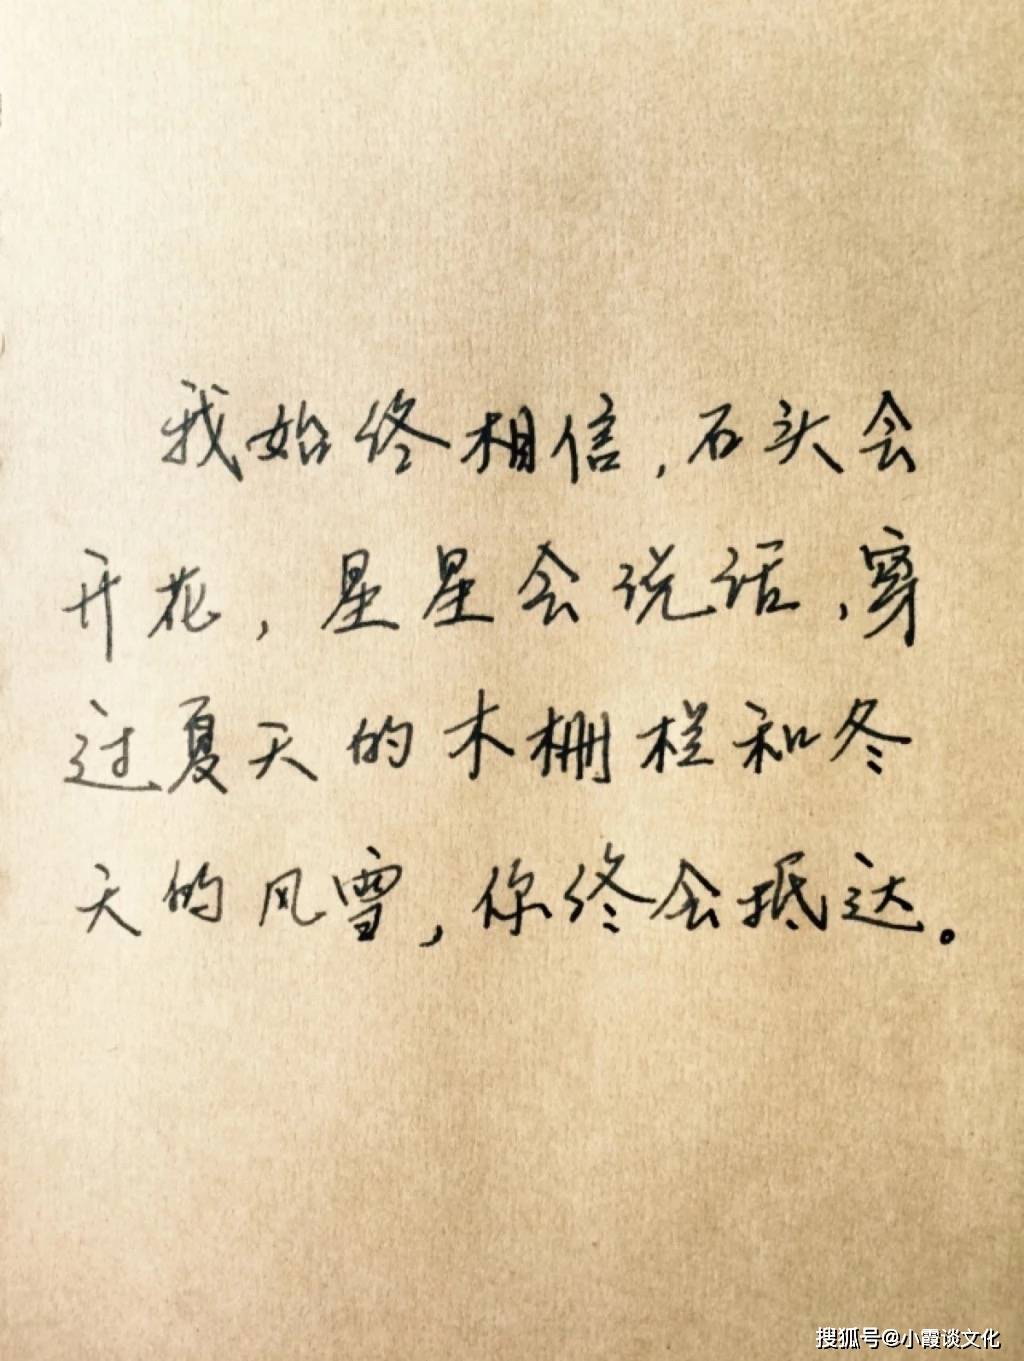 我始终相信,石头会
开花,星星会说话,穿
过夏天的木栅栏和冬
天的风雪,你终会抵达。
搜狐号@小霞谈文化